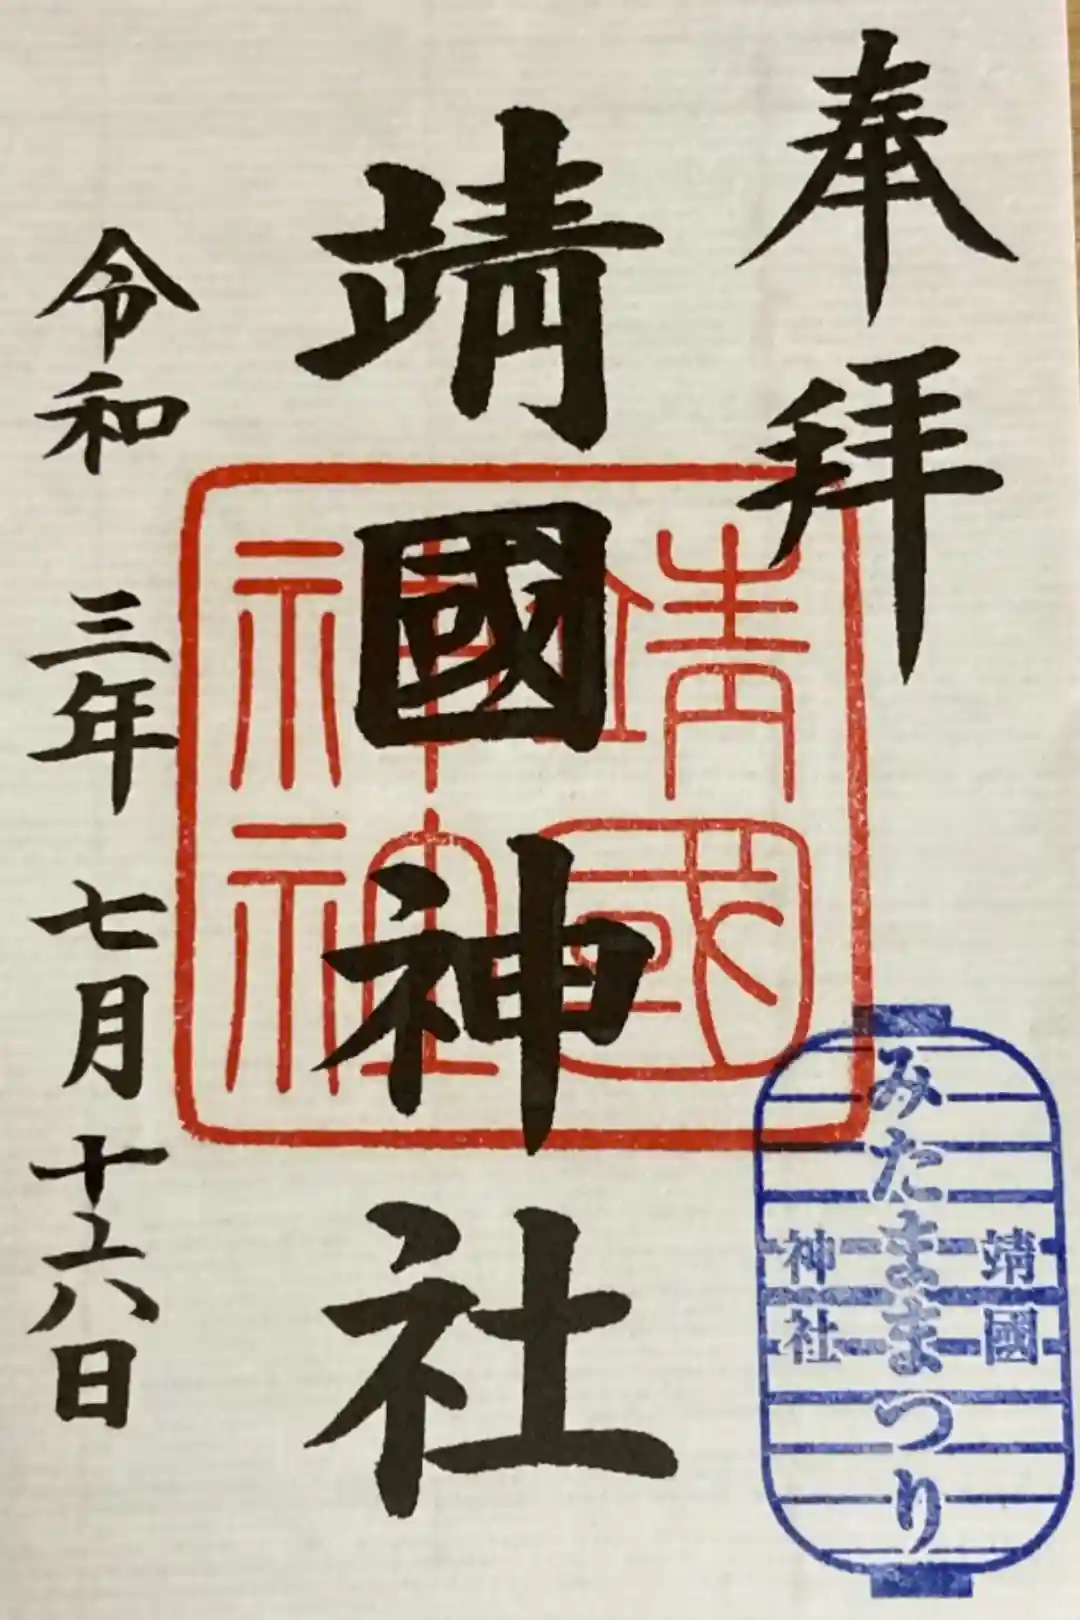 奉拝
靖國神社
靖國
神社
令和三年七月十六日
みたままつり
靖國
神社